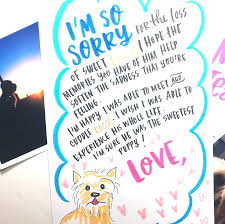 I'M SO
SORRY FOR the LOSS
OF SWEET I HOPE THE
MEMORIES YOU HAVE OF HIM HELP
SOFTEN THE SADNESS THAT YOU'RE
FEELING.
I'M HAPPY I WAS ABLE TO MEET AND
CUDDLE I WISH I WAS ABLE TO
EXPERIENCE HIS WHOLE LIFE.
I'M SURE HE WAS THE SWEETEST
PUPPY!
LOVE,